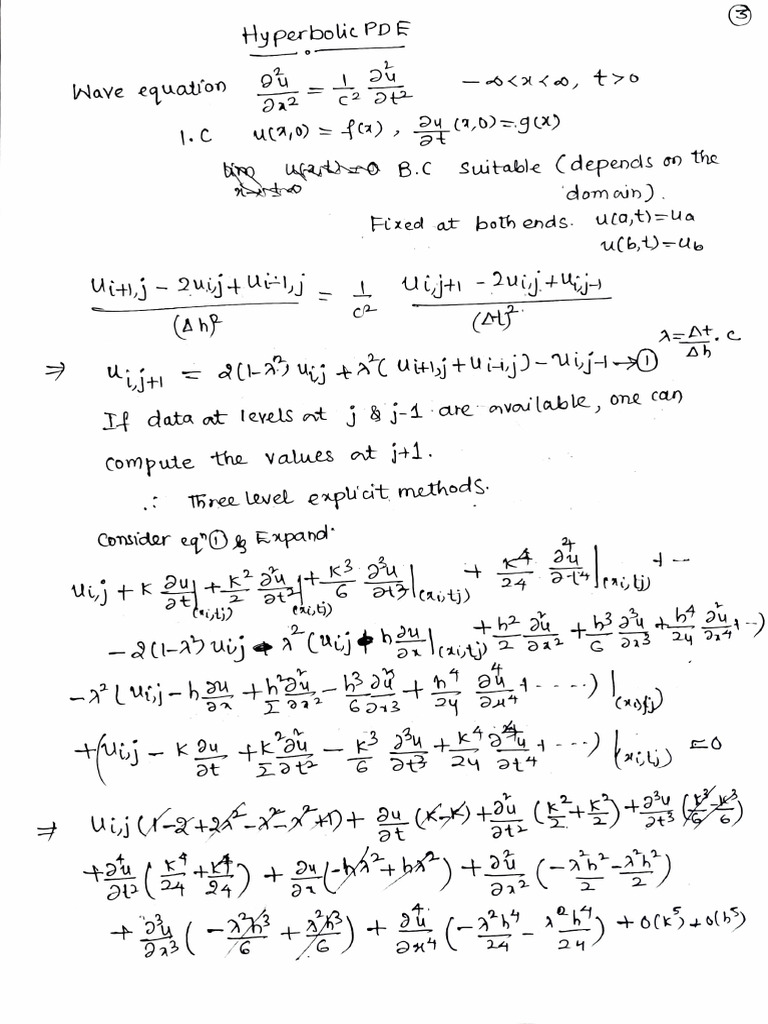 ③
Hyperbolic PDE
Wave equation ∂²u/∂x² = 1/c² ∂²u/∂t²   -∞<x<∞, t>0
I.C   u(x,0) = f(x), ∂u/∂t (x,0) = g(x)
B.C suitable (depends on the
domain).
Fixed at both ends. u(a,t)=ua
u(b,t)=ub
(ui+1,j - 2ui,j + ui-1,j)/(Δh)² = 1/c² (ui,j+1 - 2ui,j + ui,j-1)/(Δt)²
λ = Δt/Δh . c
⇒ ui,j+1 = 2(1-λ²) uij + λ²(ui+1,j + ui-1,j) - ui,j-1 → ①
If data at levels at j & j-1 are available, one can
compute the values at j+1.
∴ Three level explicit methods.
Consider eqⁿ ① & Expand.
ui,j + k ∂u/∂t|(xi,tj) + k²/2 ∂²u/∂t²|(xi,tj) + k³/6 ∂³u/∂t³|(xi,tj) + k⁴/24 ∂⁴u/∂t⁴|(xi,tj) + --
-2(1-λ²) uij - λ²(uij + h ∂u/∂x|(xi,tj) + h²/2 ∂²u/∂x² + h³/6 ∂³u/∂x³ + h⁴/24 ∂⁴u/∂x⁴ + --)
-λ²(ui,j - h ∂u/∂x + h²/2 ∂²u/∂x² - h³/6 ∂³u/∂x³ + h⁴/24 ∂⁴u/∂x⁴ + -----)|(xi,tj)
+(uij - k ∂u/∂t + k²/2 ∂²u/∂t² - k³/6 ∂³u/∂t³ + k⁴/24 ∂⁴u/∂t⁴ + ---)|(xi,tj) = 0
⇒ ui,j(1-2+2λ²-λ²-λ²+1) + ∂u/∂t (k-k) + ∂²u/∂t² (k²/2 + k²/2) + ∂³u/∂t³ (k³/6 - k³/6)
+ ∂⁴u/∂t² (k⁴/24 + k⁴/24) + ∂u/∂x (-hλ² + hλ²) + ∂²u/∂x² (-λ²h²/2 - λ²h²/2)
+ ∂³u/∂x³ (-λ²h³/6 + λ²h³/6) + ∂⁴u/∂x⁴ (-λ²h⁴/24 - λ²h⁴/24) + O(k⁵) + O(h⁵)